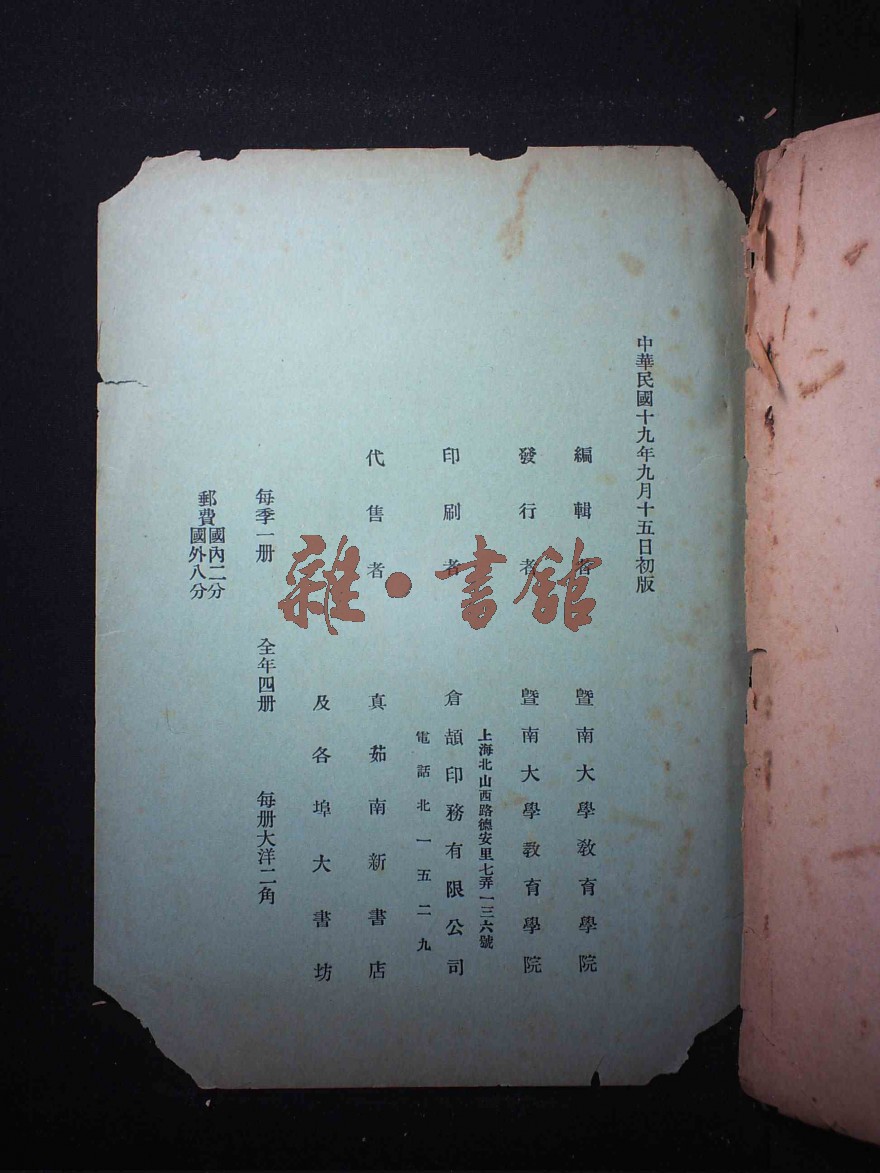 中華民國十九年九月十五日初版
編輯者 暨南大學教育學院
發行者 暨南大學教育學院
上海北山西路德安里七弄一三六號
印刷者 倉頡印務有限公司
電話北一五二九
代售者 真茹南新書店
及各埠大書坊
每季一册 全年四册 每册大洋二角
郵費 國內二分
國外八分
雜·書館